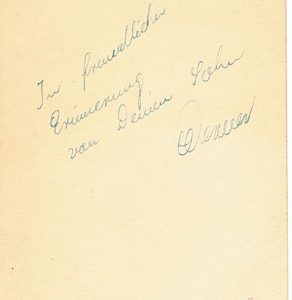 In freundlicher
Erinnerung
von Deinem Sohn
Werner